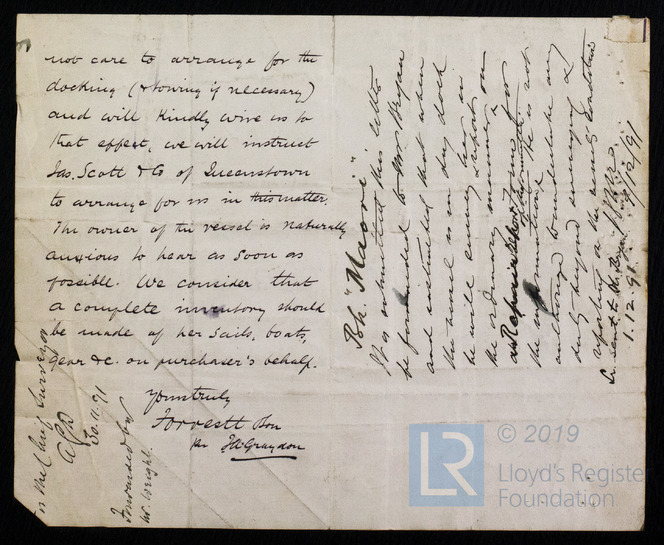 not care to arrange for the
docking (& towing if necessary)
and will kindly wire us to
that effect, we will instruct
Jas. Scott & Co of Queenstown
to arrange for us in this matter.
The owner of the vessel is naturally
anxious to hear as soon as
possible. We consider that
a complete inventory should
be made of her sails, boats,
gear &c. on purchaser's behalf.
Yours truly
Forrestt & Son
per J W Graydon
The Chief Surveyor
30.11.91
Forwarded by
Mr. Wright.
Bk. "Maori"
It is submitted this letter
be forwarded to Mr Bryan
and instructed that when
the vessel is in dry dock
he will survey her in
the ordinary manner & report on
the information. He is not
authorized to undertake any
duty beyond surveying &
reporting on the vessel's condition
Lr. sent to Mr Bryan
1.12.91
1/12/91
© 2019
LR
Lloyd's Register
Foundation